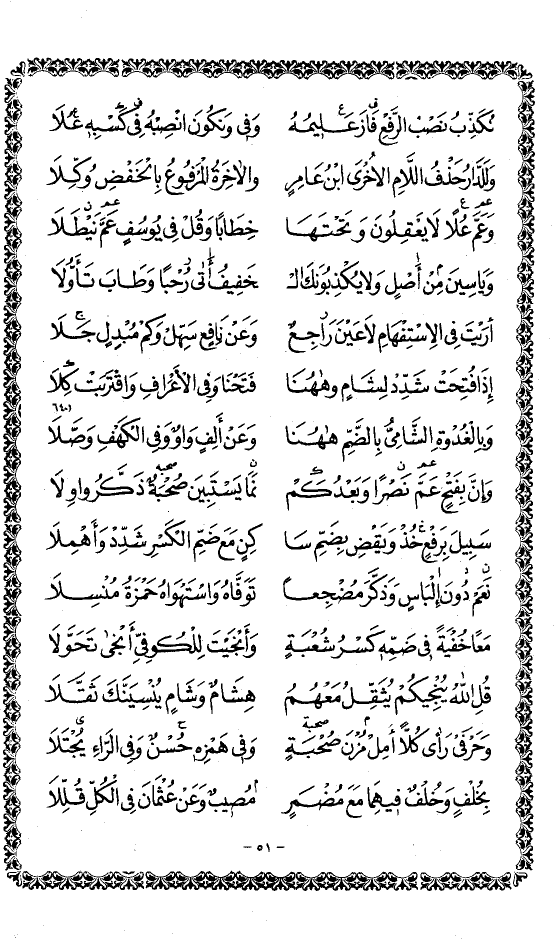 نُكَذِّبُ نَصْبُ الرَّفْعِ فَازَ عَلِيمُهُ وَفِي وَنَكُونَ انْصِبْهُ فِي كَسْبِهِ عُلَا
وَلَلدَّارُ حَذْفُ اللَّامِ الْأُخْرَى ابْنُ عَامِرٍ وَالْآخِرَةُ الْمَرْفُوعُ بِالْخَفْضِ وُكِّلَا
وَعَمَّ عُلًا لَا يَعْقِلُونَ وَتَحْتَهَا خِطَابًا وَقُلْ فِي يُوسُفٍ عَمَّ نَيْطَلَا
وَيَاسِينَ مِنْ أَصْلٍ وَلَا يُكْذِبُونَكَ الْـ خَفِيفُ أَتَى رُحْبًا وَطَابَ تَأَوُّلَا
أَرَيْتَ فِي الِاسْتِفْهَامِ لَا عَيْنَ رَاجِعٌ وَعَنْ نَافِعٍ سَهِّلْ وَكَمْ مُبْدِلٍ جَلَا
إِذَا فُتِحَتْ شَدِّدْ لِشَامٍ وَهٰهُنَا فَتَحْنَا وَفِي الْأَعْرَافِ وَاقْتَرَبَتْ كِلَا
وَبِالْغُدْوَةِ الشَّامِيُّ بِالضَّمِّ هٰهُنَا وَعَنْ أَلِفٍ وَاوٌ وَفِي الْكَهْفِ وَصَّلَا
وَإِنَّ بِفَتْحٍ عَمَّ نَصْرًا وَبَعْدُ كَمْ نَمَا يَسْتَبِينَ صُحْبَةٌ ذَكَّرُوا وِلَا
سَبِيلَ بِرَفْعٍ خُذْ وَيَقْضِ بِضَمِّ سَا كِنٍ مَعَ ضَمِّ الْكَسْرِ شَدِّدْ وَأَهْمِلَا
نَعَمْ دُونَ إِلْبَاسٍ وَذَكَّرَ مُضْجِعًا تَوَفَّاهُ وَاسْتَهْوَاهُ حَمْزَةُ مُنْسِلَا
مَعًا خُفْيَةً فِي ضَمِّهِ كَسْرُ شُعْبَةٍ وَأَنْجَيْتَ لِلْكُوفِيِّ أَنْجَى تَحَوَّلَا
قُلِ اللَّهُ يُنْجِيكُمْ يُثَقِّلُ مَعْهُمُ هِشَامٌ وَشَامٍ يُنْسِيَنَّكَ ثَقَّلَا
وَحَرْفَيْ رَأَى كُلًّا أَمِلْ مُزْنَ صُحْبَةٍ وَفِي هَمْزِهِ حُسْنٌ وَفِي الرَّاءِ يُجْتَلَا
بِخُلْفٍ وَخُلْفٌ فِيهِمَا مَعَ مُضْمَرٍ مُصِيبٌ وَعَنْ عُثْمَانَ فِي الْكُلِّ قَلِّلَا
- ٥١ -